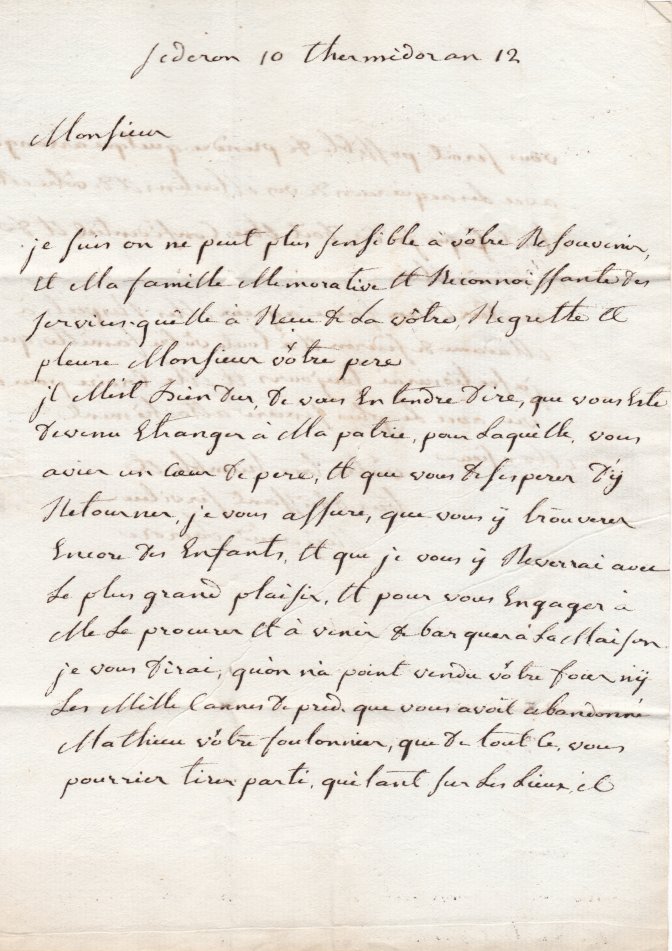 sederon 10 thermidor an 12
Monsieur
je suis on ne peut plus sensible à vôtre Resouvenir,
et Ma famille Memorative et Reconnoissante des
services quelle à Recu de La vôtre, Regrette et
pleure Monsieur vôtre pere
jl Mest bien dur, de vous Entendre dire, que vous Ete
devenu Etranger à Ma patrie, pour Laquelle, vous
avier un cœur de pere, et que vous desesperer d'ÿ
Retourner, je vous assure, que vous ÿ trouverer
Encore des Enfants, et que je vous ÿ Reverrai avec
Le plus grand plaisir, et pour vous Engager à
Me Le procurer et à venir debarquer à La Maison
je vous dirai, quon n'a point vendu vôtre four nÿ
Les Mille Cannes de pred. que vous avoit abandonné
Mathieu vôtre foulonnier, que de tout ce, vous
pourrier tirer parti, quetant sur Les Lieux, et